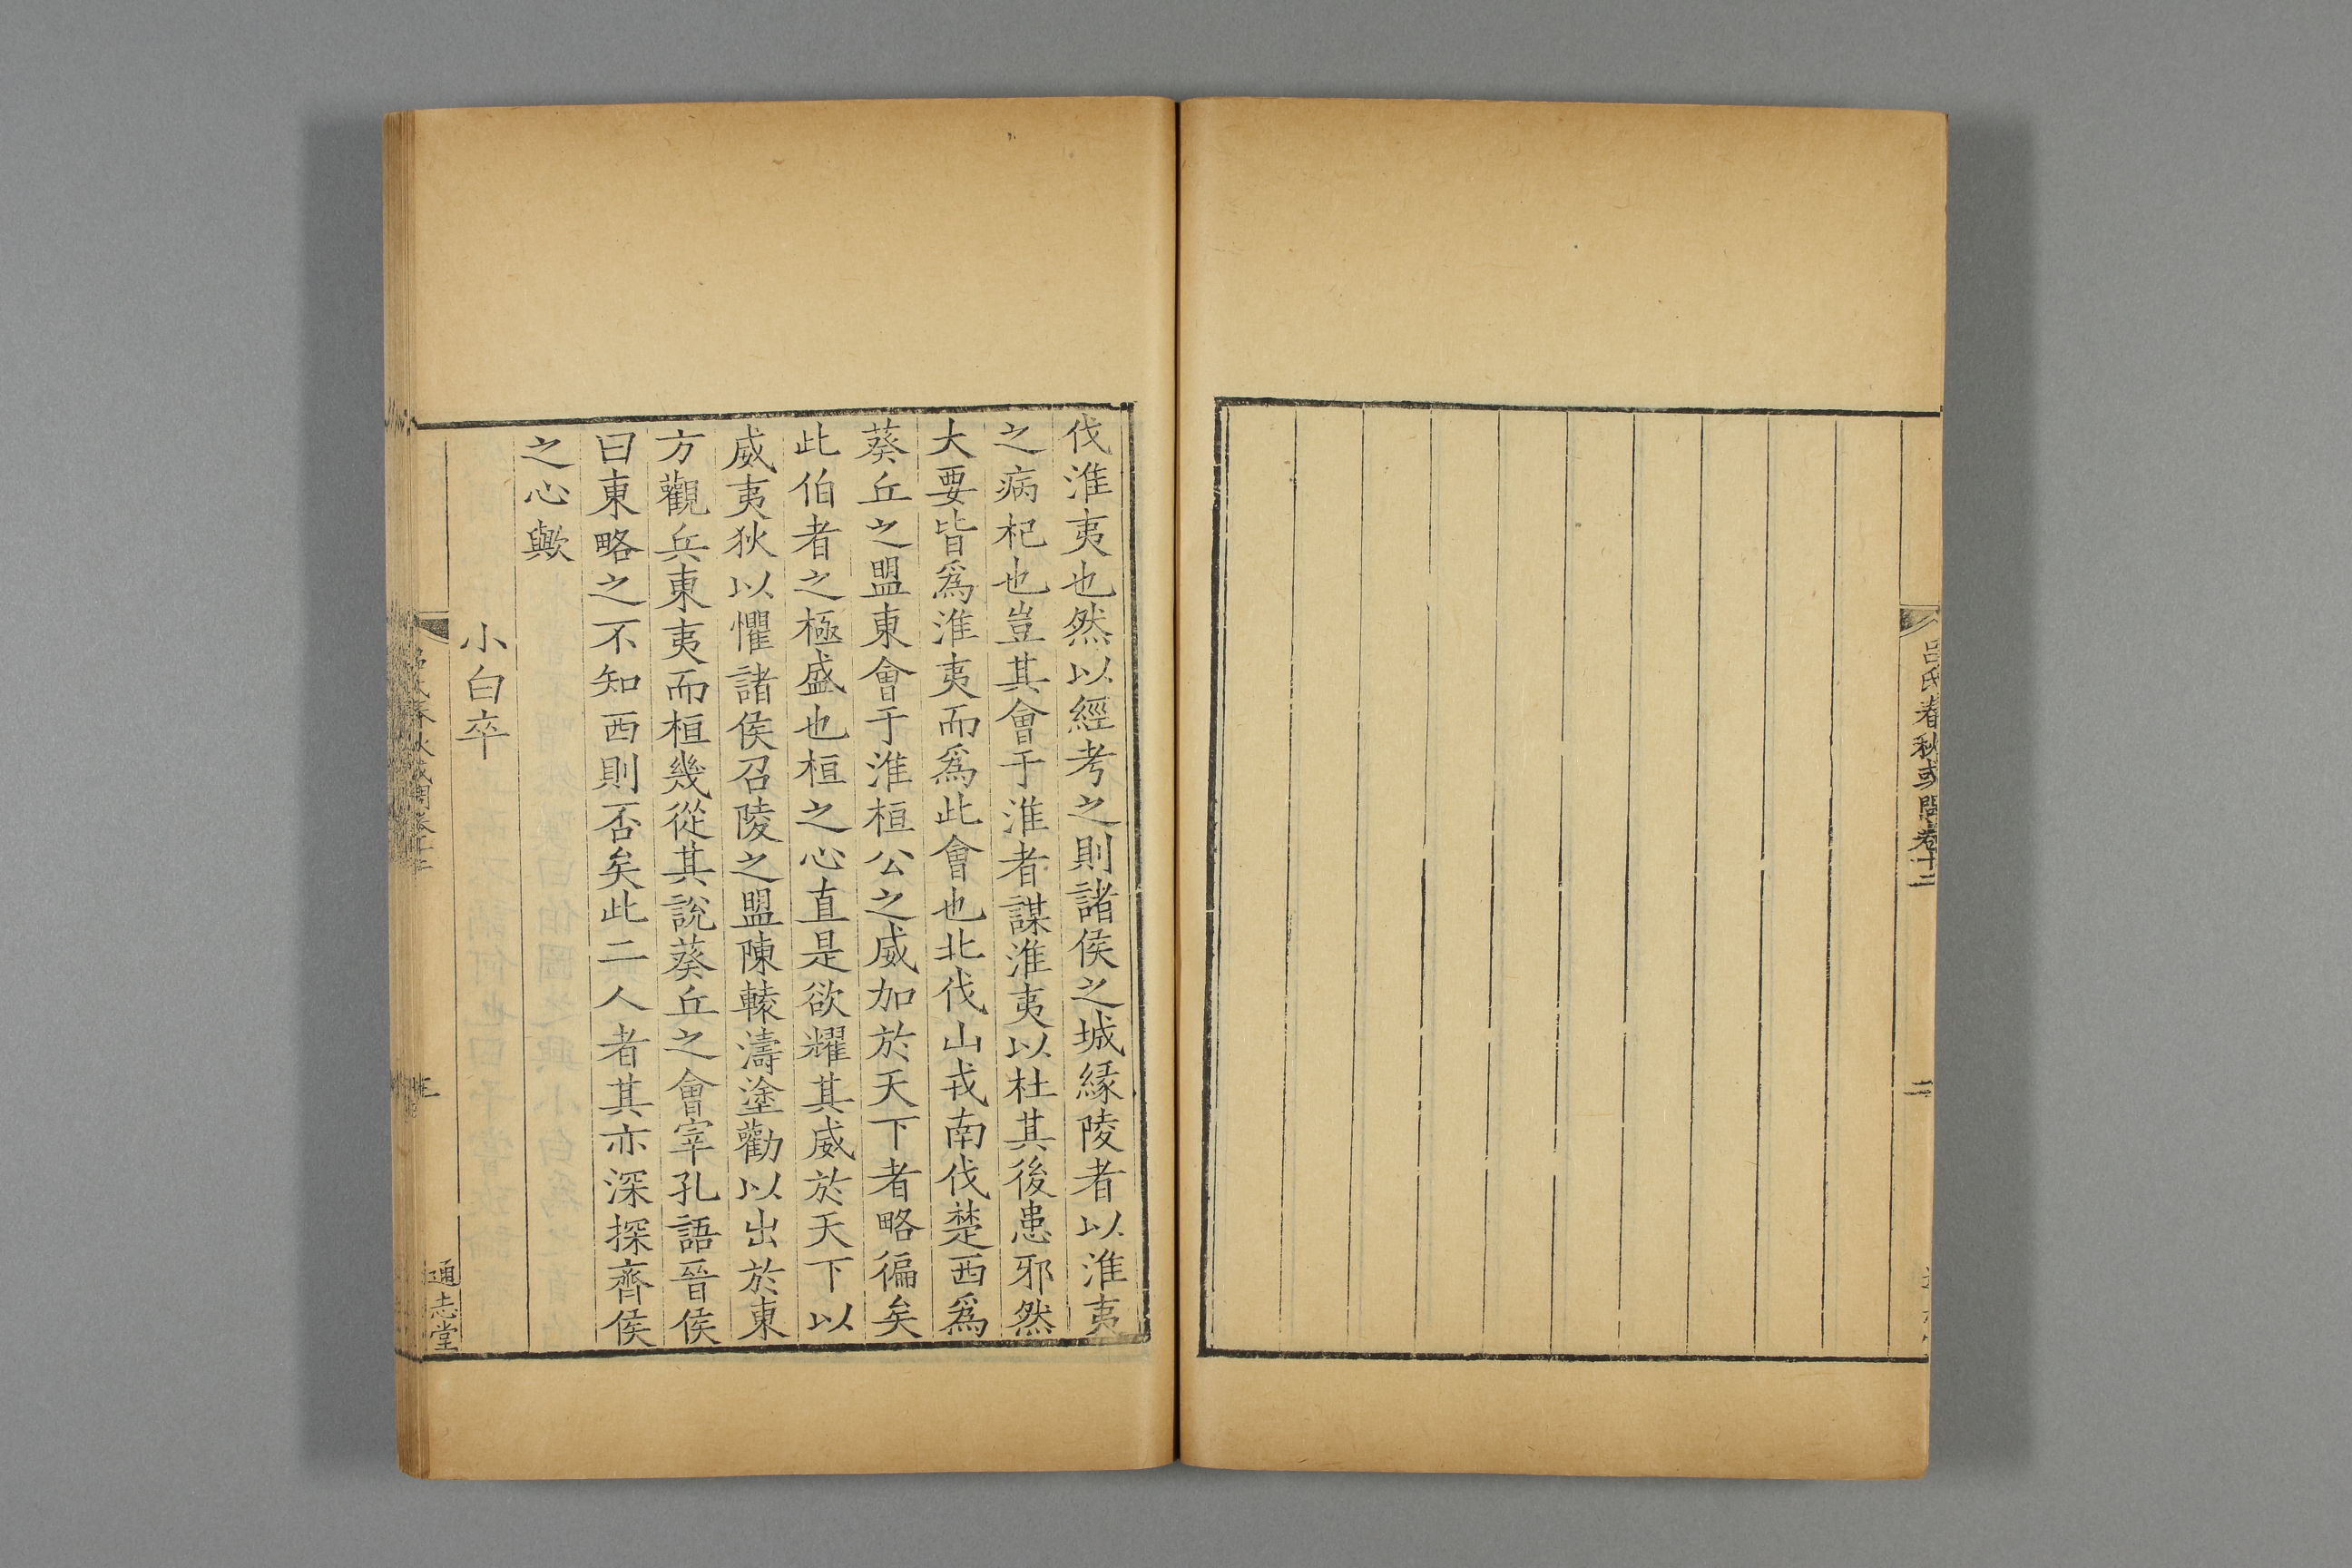 呂氏春秋或問卷十二
二
伐淮夷也然以經考之則諸侯之城緣陵者以淮夷
之病杞也豈其會于淮者謀淮夷以杜其後患邪然
大要皆爲淮夷而爲此會也北伐山戎南伐楚西爲
葵丘之盟東會于淮桓公之威加於天下者略徧矣
此伯者之極盛也桓之心直是欲耀其威於天下以
威夷狄以懼諸侯召陵之盟陳轅濤塗勸以出於東
方觀兵東夷而桓幾從其說葵丘之會宰孔語晉侯
曰東略之不知西則否矣此二人者其亦深探齊侯
之心歟
小白卒
通志堂